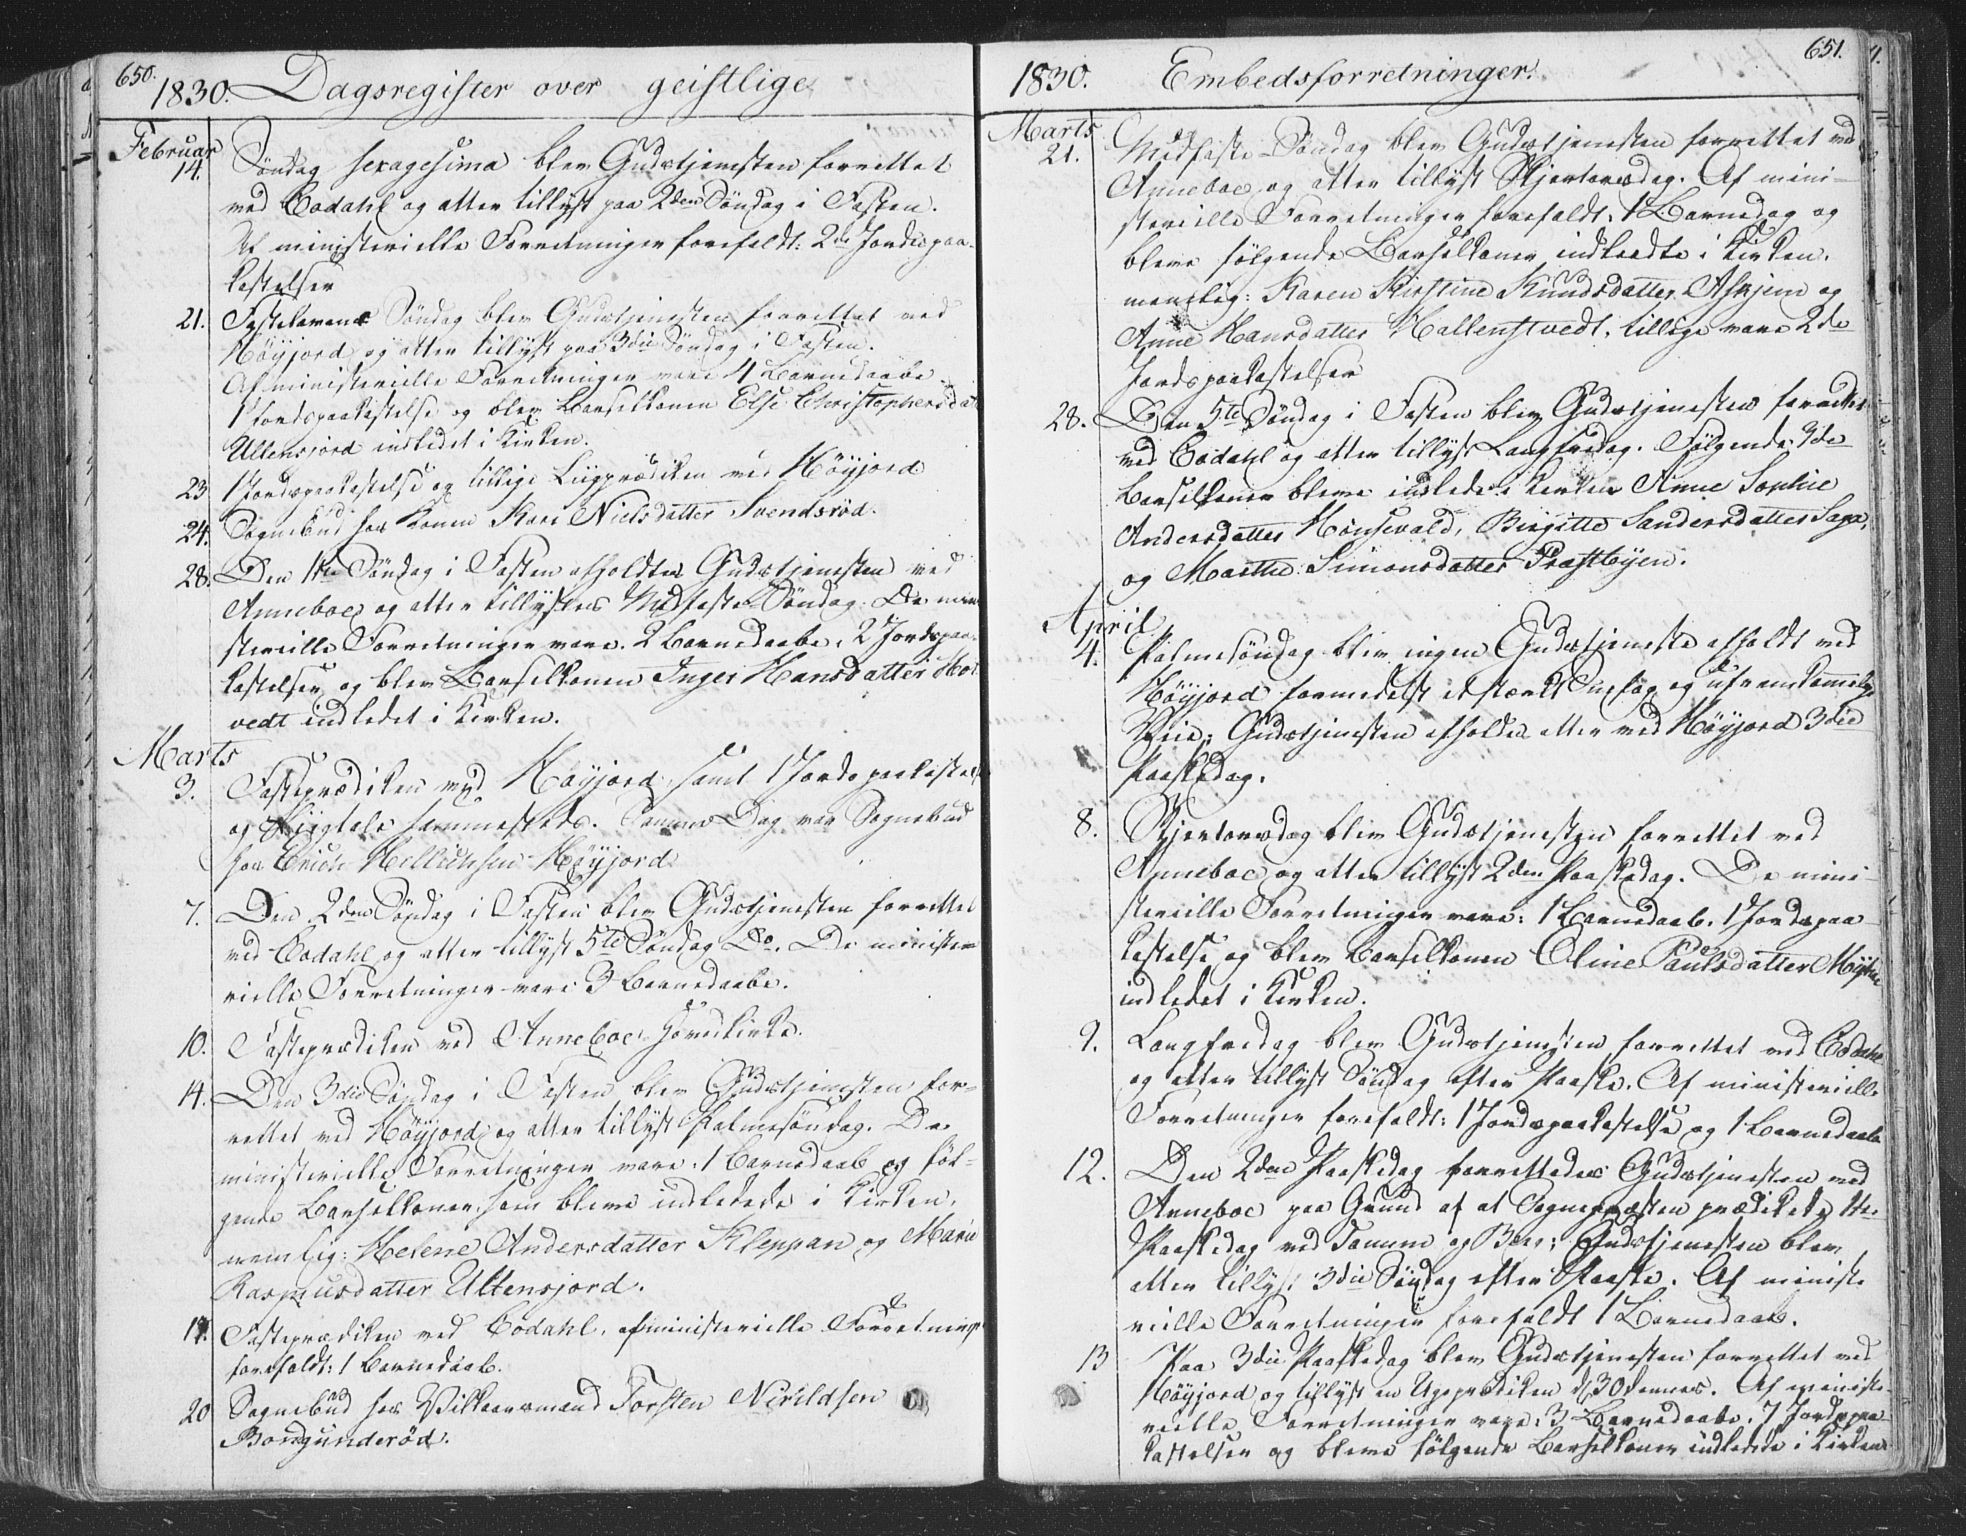 650.
1830. Dagsregister over geistlige
Februar
14. Søndag sexagesima blev Gudstjenesten forrettet
ved Codahl og atter tillyst paa 2den Søndag i Fasten.
Af ministerielle Forretninger forefaldt: 2de Jordspaa-
kastelser
21. Fastelavens Søndag blev Gudstjenesten forrettet ved
Høyjord og atter tillyst paa 3die Søndag i Fasten.
Af ministerielle Forretninger vare 4 Barnedaabe
1 Jordspaakastelse og blev Barselkonen Else Christophersdat
Ultensjord indledet i Kirken.
23 1 Jordspaakastelse og tillige Liigprædiken ved Høyjord
24. Sognebud hos Konen Kari Nielsdatter Svendsrød.
28. Den 1ste Søndag i Fasten afholdtes Gudstjenesten ved
Anneboe og atter tillystes Midfaste Søndag. De mini
sterielle Forretninger vare. 2 Barnedaabe, 2 Jordspaa-
kastelser og blev Barselkonen Inger Hansdatter Hot
vedt indledet i Kirken.
Marts
3. Fasteprædiken ved Høyjord samt 1 Jordspaakastelse
og Liigtale sammesteds. Samme Dag var Sognebud
hos Erich Hellichsen Høyjord
7. Den 2den Søndag i Fasten blev Gudstjenesten forrettet
ved Codahl og atter tillyst 5te Søndag Do. De ministe
rielle Forretninger vare 3 Barnedaabe.
10. Fasteprædiken ved Anneboe Hovedkirke.
14. Den 3die Søndag i Fasten blev Gudstjenesten for-
rettet ved Høyjord og atter tillyst Palmesøndag. De
ministerielle Forretninger vare. 1 Barnedaab og føl-
gende Barselkoner som bleve indledede i Kirken,
nemlig: Helene Andersdatter Kleppan og Marie
Rasmusdatter Ultensjord.
17. Fasteprædiken ved Codahl, af ministerielle Forretninger
forefaldt: 1 Barnedaab.
20 Sognebud hos Vilkaarsmand Torsten Nirildsen
Borgunderød.
651.
1830. Embedsforretninger.
Marts
21. Midfaste Søndag blev Gudstjenesten forrettet ved
Anneboe og atter tillyst Skjertorsdag. Af mini-
sterielle Forretninger forefaldt, 1 Barnedaab og
bleve følgende Barselkoner indledte i Kirken.
nemlig: Karen Kirstine Knudsdatter Askjem og
Anne Hansdatter Hallenstvedt, tillige vare 2de
Jordspaakastelser
28. Den 5te Søndag i Fasten blev Gudstjenesten forrettet
ved Codahl og atter tillyst Langfredag. Følgende 3de
Barselkoner bleve indledede i Kirken Anne Sophie
Andersdatter Hønsevald, Birgitte Sandersdatter Saga,
og Marthe Simonsdatter Præstbyen.
April
4. Palmesøndag blev ingen Gudstjeneste afholdt ved
Høyjord formedelst et stærkt Snefog og ufremkommelige
Veie; Gudstjenesten afholdes atter ved Høyjord 3die
Paaskedag.
8. Skjertorsdag blev Gudstjenesten forrettet ved
Anneboe og atter tillyst 2den Paaskedag. De mini-
sterielle Forretninger vare: 1 Barnedaab. 1 Jordspaa-
kastelse og blev Barselkonen Oline Paulsdatter Myhre
indledet i Kirken.
9. Langfredag blev Gudstjenesten forrettet ved Codahl
og atter tillyst Søndag efter Paaske. Af ministerielle
Forretninger forefaldt: 1 Jordspaakastelse og 1 Barnedaab
12. Den 2den Paaskedag forrettedes Gudstjenesten ved
Anneboe paa Grund af at Sognepræsten prædikede 1ste
Paaskedag ved Ramnes og Berg; Gudstjenesten blev
atter tillyst 3die Søndag efter Paaske. Af ministe
rielle Forretninger forefaldt 1 Barnedaab.
13 Paa 3die Paaskedag blev Gudstjenesten forrettet ved
Høyjord og tillyst en Ugeprædiken d. 30 dennes. Af ministe-
rielle Forretninger vare 3 Barnedaabe, 7 Jordspaa-
kastelser og bleve følgende Barselkoner indledede i Kirken